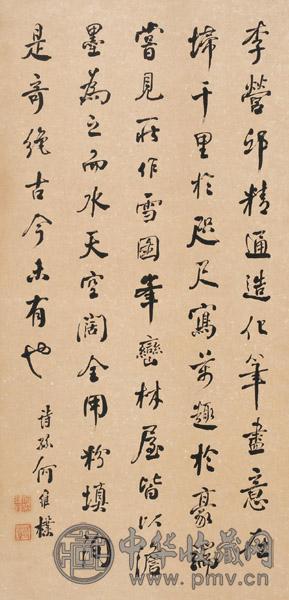 李營邱精通造化筆盡意在
掃千里於咫尺寫萬趣於豪端
嘗見所作雪圖峯巒林屋皆以澹
墨為之而水天空闊全用粉填
是奇絶古今未有也
詩孫何維樸
中华收藏网
www.pmv.cn